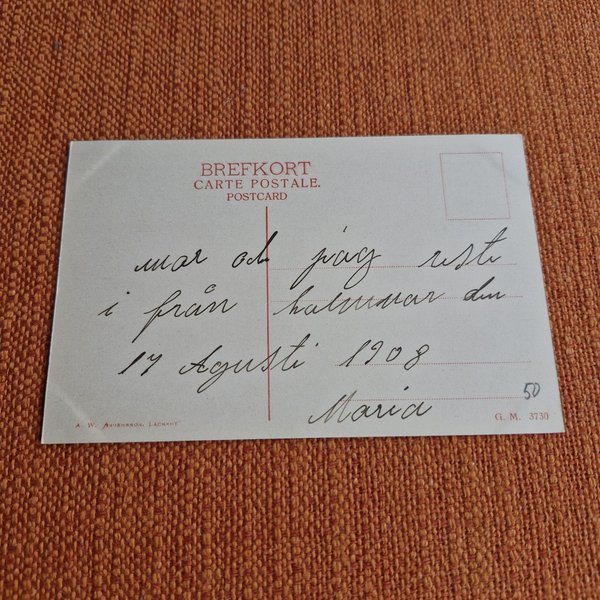 BREFKORT
CARTE POSTALE.
POSTCARD
mor och jag reste
i från halmmar den
17 Agusti 1908
Maria
50
G. M. 3730
A. W.